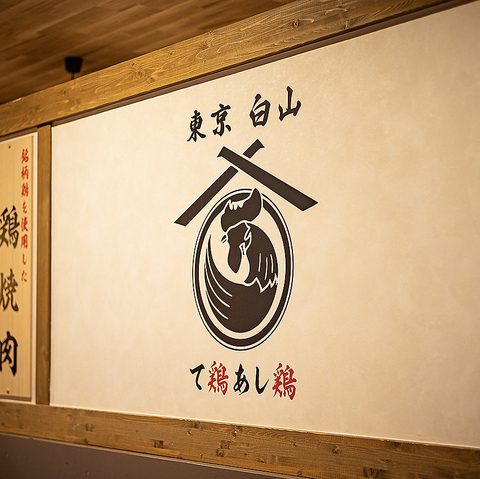 東京 白山
て鶏あし鶏
銘柄鶏を使用した
鶏焼肉